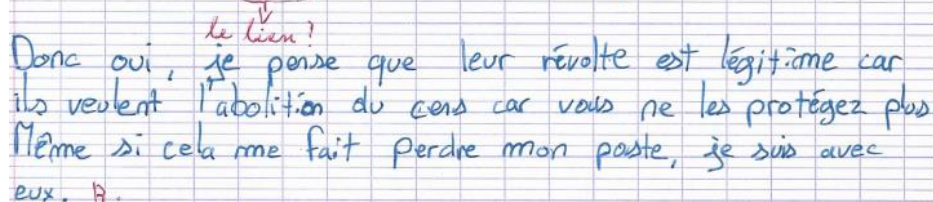 le lien ?
Donc oui, je pense que leur révolte est légitime car
ils veulent l'abolition du cens car vous ne les protégez plus
Même si cela me fait perdre mon poste, je suis avec
eux. B.